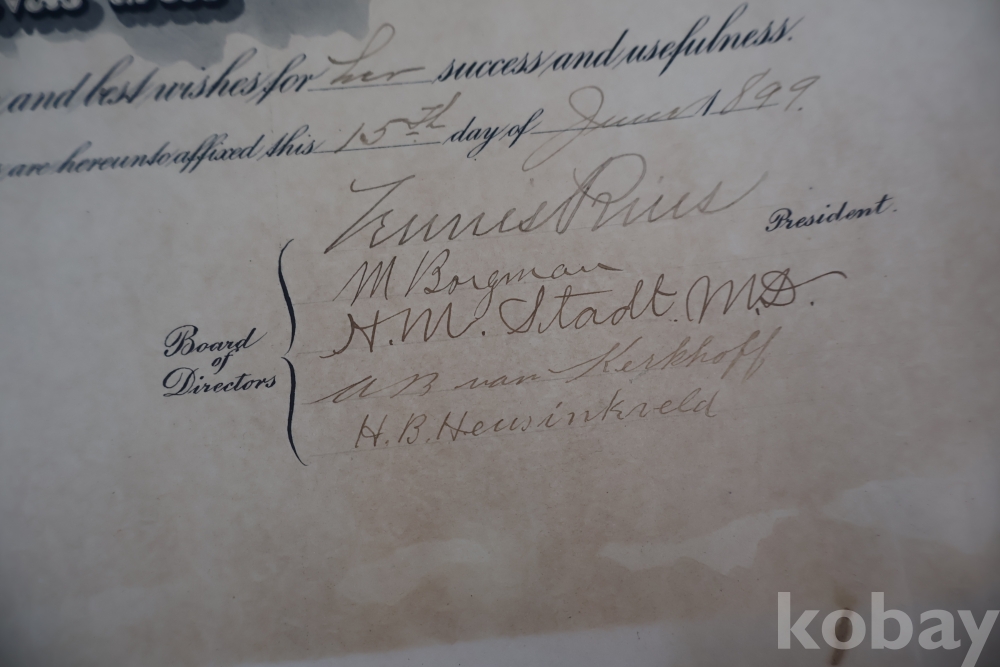 and best wishes for her success and usefulness.
are hereunto affixed this 15th day of June 1899.
Teunis Rius President.
M Borgman
H. M. Stadt. M.D.
Board
of
Directors
A B van Kerkhoff
H. B. Heusinkveld
kobay